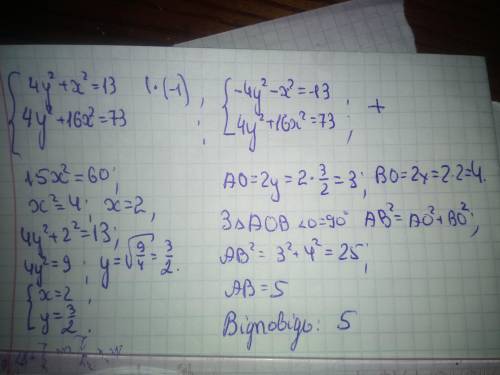 { 4y²+x²=13 | ·(-1) ; { -4y²-x²=-13 ; +
4y²+16x²=73 ; 4y²+16x²=73 ;
15x²=60;
x²=4; x=2,
4y²+2²=13;
4y²=9; y=√9/4=3/2.
{ x=2;
y=3/2.
AO=2y=2·3/2=3; BO=2x=2·2=4.
З ΔAOB ∠O=90° AB²=AO²+BO²;
AB²=3²+4²=25;
AB=5
Відповідь: 5